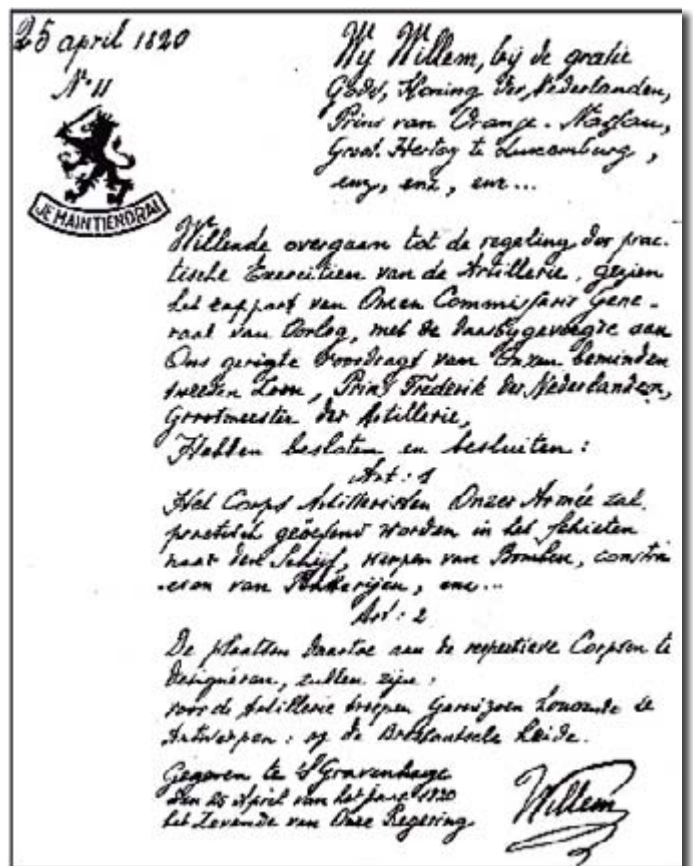 25 april 1820
No 11
JE MAINTIENDRAI
Wij Willem, bij de gratie
Gods, Koning der Nederlanden,
Prins van Oranje-Nassau,
Groot Hertog te Luxemburg,
enz, enz, enz...
Willende overgaan tot de regeling der prac-
tische Exercitien van de Artillerie, gezien
het rapport van Onzen Commissaris Gene-
raal van Oorlog, met de daarbijgevoegde aan
Ons gerigte voordragt van Onzen beminden
tweeden Zoon, Prins Frederik der Nederlanden,
Grootmeester der Artillerie,
Hebben besloten en besluiten:
Art: 1
Het Corps Artilleristen Onzer Armée zal
practisch geöefend worden in het schieten
naar den Schijf, werpen van Bomben, constru
eren van Batterijen, enz...
Art: 2
De plaatsen daartoe aan de respectieve Corpsen te
designéren, zullen zijn:
voor de Artillerie troepen Garnizoen houdende te
Antwerpen: op de Brabantsche heide.
Gegeven te 'S Gravenhage
den 25 April van het jaar 1820
het Zevende van Onze Regering.
Willem